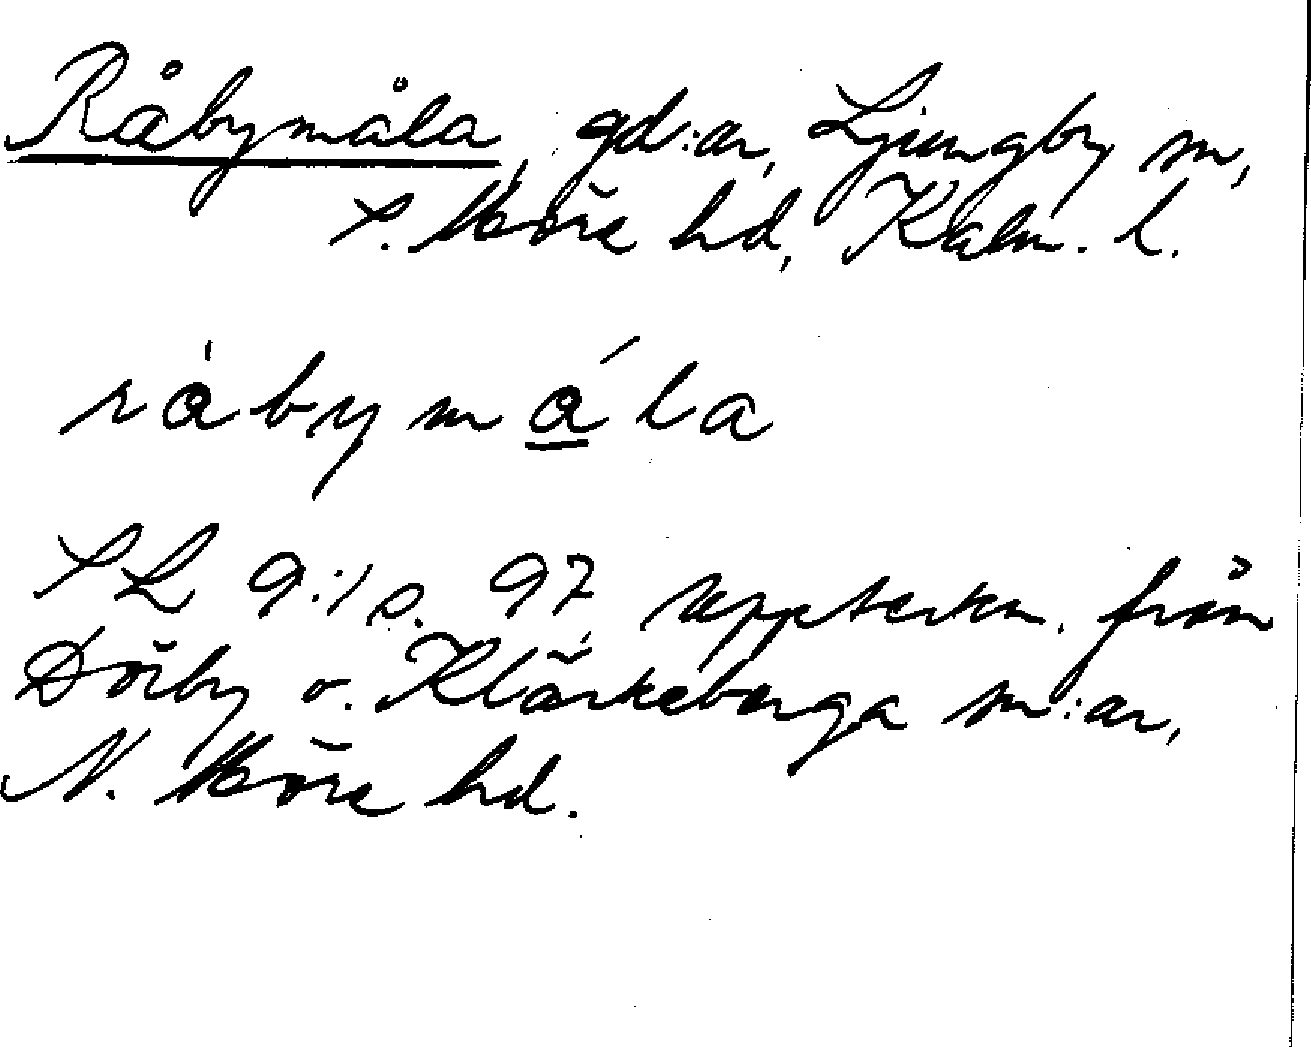 Råbymåla, gd:ar, Ljungby sn,
S. Möre hd, Kalm. l.
råbymåla
SL 9:1 s. 97 uppteckn. från
Dörby o. Kläckeberga sn:ar,
N. Möre hd.